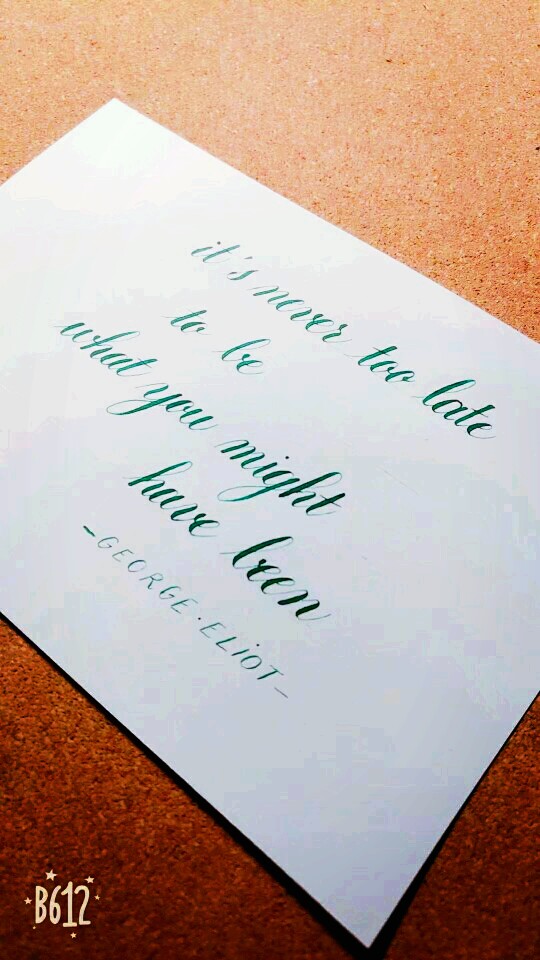 it's never too late
to be
what you might
have been
-GEORGE·ELiOT-
B612